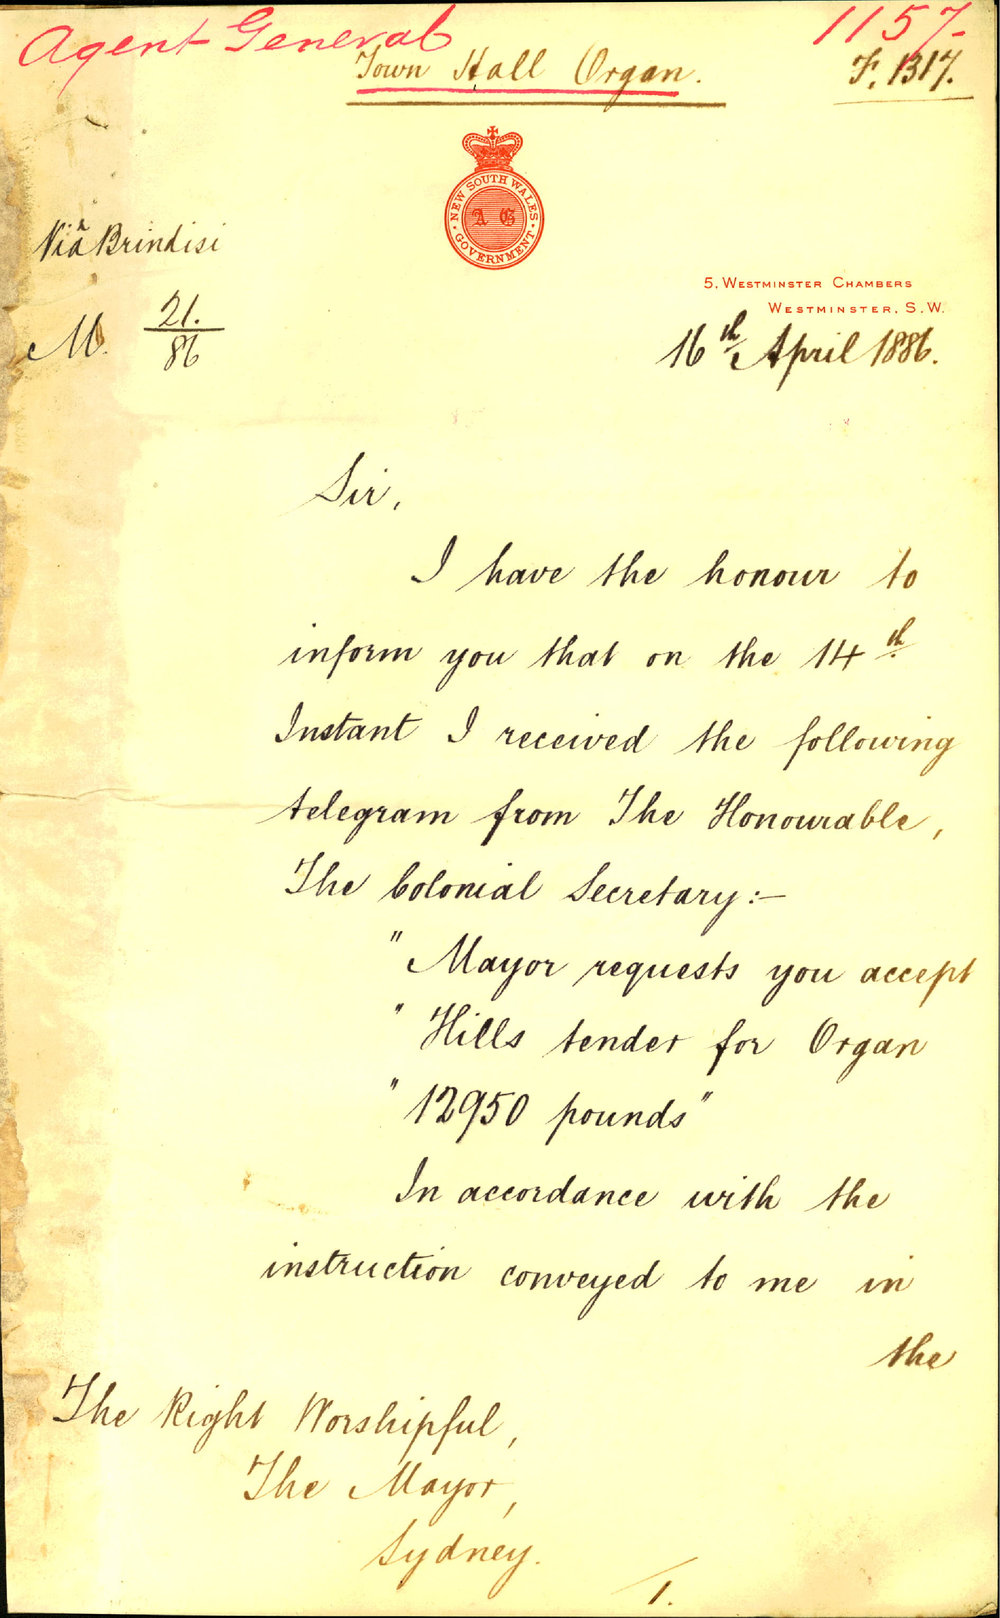 Agent General
1157-
Town Hall Organ.
F. 1317.
NEW SOUTH WALES
A G
GOVERNMENT
Viâ Brindisi
5, WESTMINSTER CHAMBERS
WESTMINSTER, S.W.
M. 21./86
16th April 1886.
Sir,
I have the honour to
inform you that on the 14th
Instant I received the following
telegram from The Honourable,
The Colonial Secretary:-
" Mayor requests you accept
" Hills tender for Organ
" 12950 pounds"
In accordance with the
instruction conveyed to me in
the
The Right Worshipful,
The Mayor,
Sydney.
1.